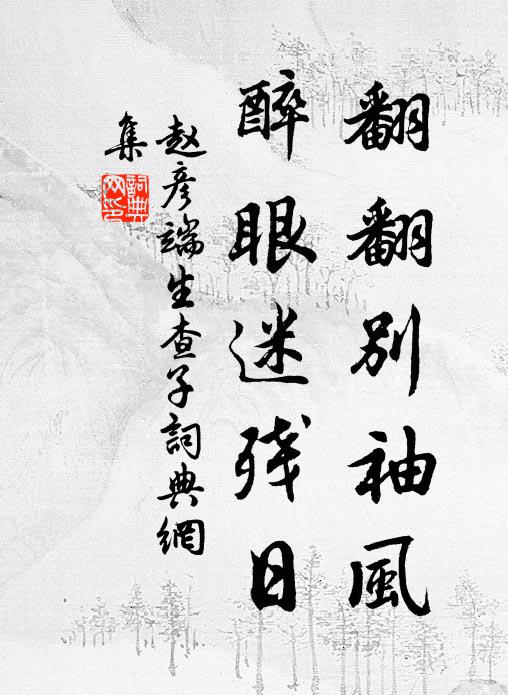 翻翻别袖風
醉眼迷残日
赵彦端生查子詞典網
集
詞典
网印